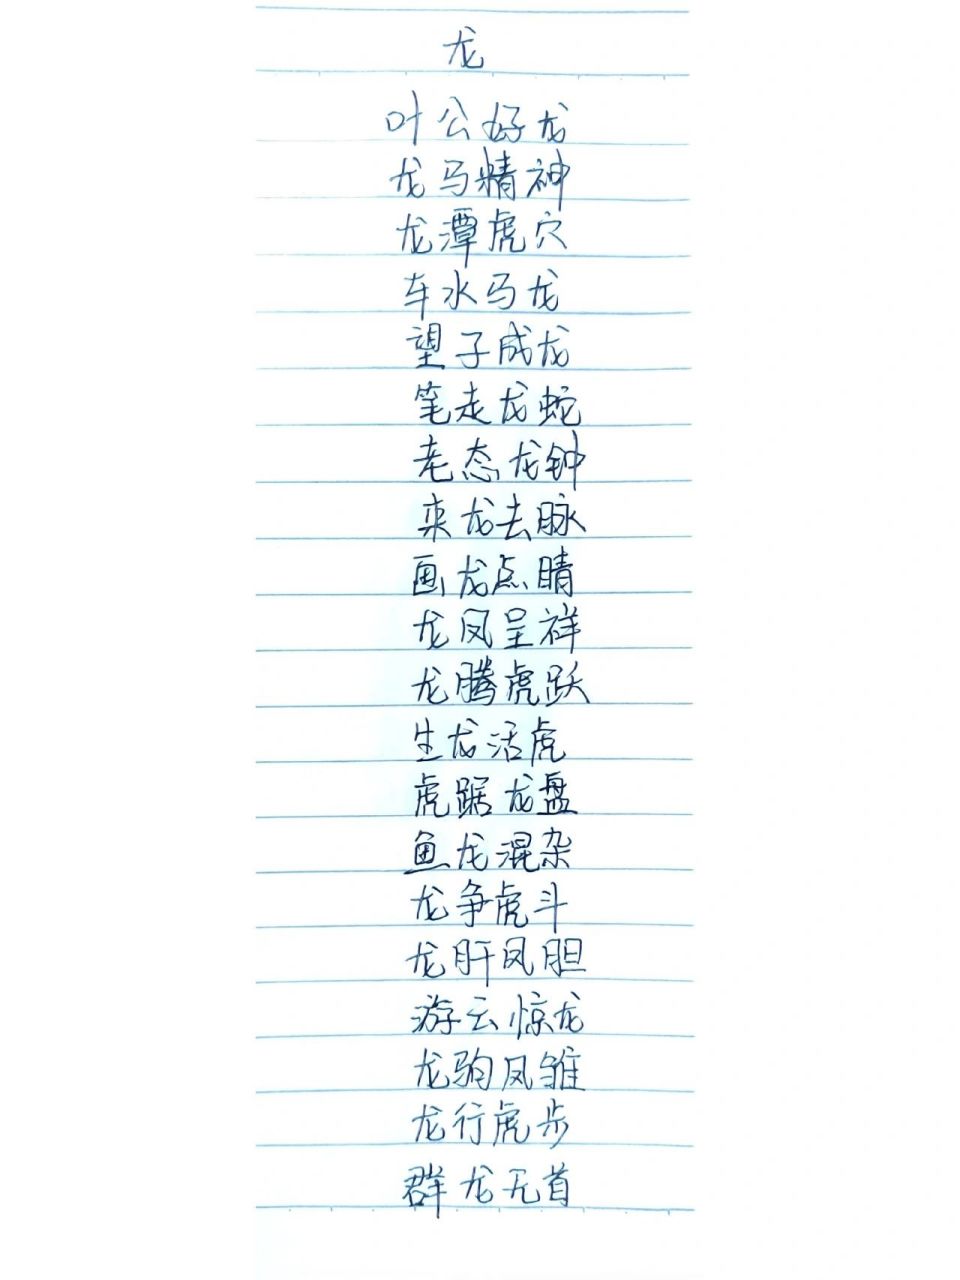 龙
叶公好龙
龙马精神
龙潭虎穴
车水马龙
望子成龙
笔走龙蛇
老态龙钟
来龙去脉
画龙点睛
龙凤呈祥
龙腾虎跃
生龙活虎
虎踞龙盘
鱼龙混杂
龙争虎斗
龙肝凤胆
游云惊龙
龙驹凤雏
龙行虎步
群龙无首